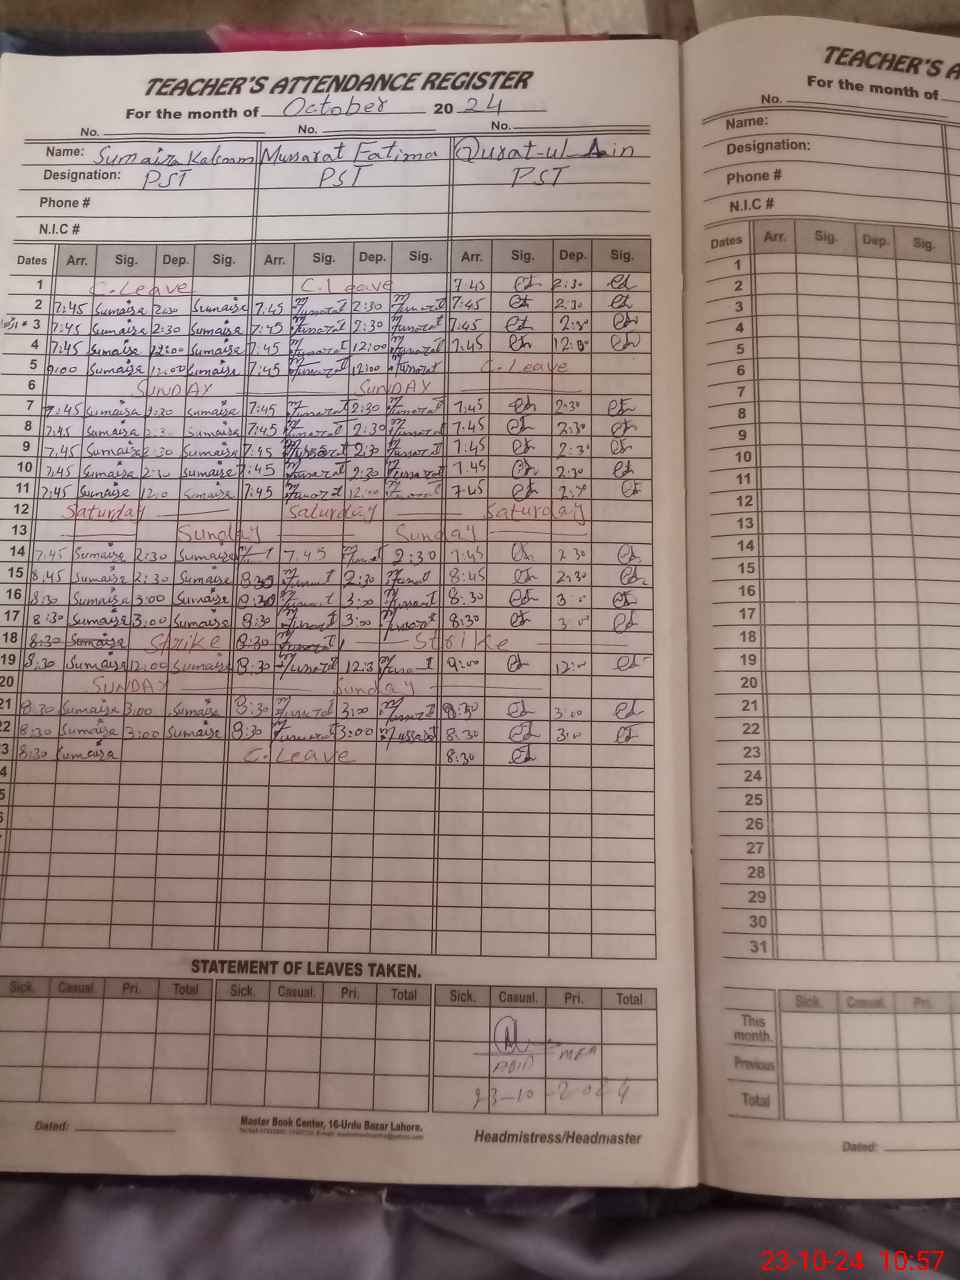 TEACHER'S ATTENDANCE REGISTER
For the month of October 2024
No. No. No.
Name: Sumaira Kalsoom Mussarat Fatima Qurat-ul-Ain
Designation: PST PST PST
Phone #
N.I.C #
Dates Arr. Sig. Dep. Sig. Arr. Sig. Dep. Sig. Arr. Sig. Dep. Sig.
1 C.Leave C.Leave 7:45 2:30
2 7:45 Sumaira 2:30 Sumaira 7:45 Mussarat 2:30 Mussarat 7:45 2:30
3 7:45 Sumaira 2:30 Sumaira 7:45 Mussarat 2:30 Mussarat 7:45 2:30
4 7:45 Sumaira 12:00 Sumaira 7:45 Mussarat 12:00 Mussarat 7:45 12:00
5 9:00 Sumaira 12:00 Sumaira 7:45 Mussarat 12:00 Mussarat C.Leave
6 SUNDAY SUNDAY
7 7:45 Sumaira 2:30 Sumaira 7:45 Mussarat 2:30 Mussarat 7:45 2:30
8 7:45 Sumaira 2:30 Sumaira 7:45 Mussarat 2:30 Mussarat 7:45 2:30
9 7:45 Sumaira 2:30 Sumaira 7:45 Mussarat 2:30 Mussarat 7:45 2:30
10 7:45 Sumaira 2:30 Sumaira 7:45 Mussarat 2:30 Mussarat 7:45 2:30
11 7:45 Sumaira Sumaira 7:45 Mussarat 12:00 Mussarat 7:45
12 Saturday Saturday Saturday
13 Sunday Sunday
14 7:45 Sumaira 2:30 Sumaira 7:45 Mussarat 2:30 7:45 2:30
15 8:45 Sumaira 2:30 Sumaira Mussarat 2:30 Mussarat 8:45 2:30
16 8:30 Sumaira 3:00 Sumaira 8:30 Mussarat 3:00 Mussarat 8:30 3:00
17 8:30 Sumaira 3:00 Sumaira 8:30 Mussarat 3:00 Mussarat 8:30 3:00
18 8:30 Sumaira Strike 8:30 Mussarat Strike
19 8:30 Sumaira 12:00 Sumaira 8:30 Mussarat 12:3 Mussarat 9:00 12:00
20 SUNDAY Sunday
21 8:30 Sumaira 3:00 Sumaira 8:30 Mussarat 3:00 Mussarat 8:30 3:00
22 8:30 Sumaira 3:00 Sumaira 8:30 Mussarat 3:00 Mussarat 8:30 3:00
3 8:30 Sumaira C.Leave 8:30
4
5
STATEMENT OF LEAVES TAKEN.
Sick. Casual Pri. Total Sick. Casual. Pri. Total Sick. Casual. Pri. Total
MEA
23-10-2024
Dated:
Master Book Center, 16-Urdu Bazar Lahore.
Headmistress/Headmaster
TEACHER'S A
For the month of
No.
Name:
Designation:
Phone #
N.I.C #
Dates Arr. Sig. Dep. Sig.
1
2
3
4
5
6
7
8
9
10
11
12
13
14
15
16
17
18
19
20
21
22
23
24
25
26
27
28
29
30
31
Sick. Casual. Pri.
This month.
Previous
Total
Dated:
23-10-24 10:57